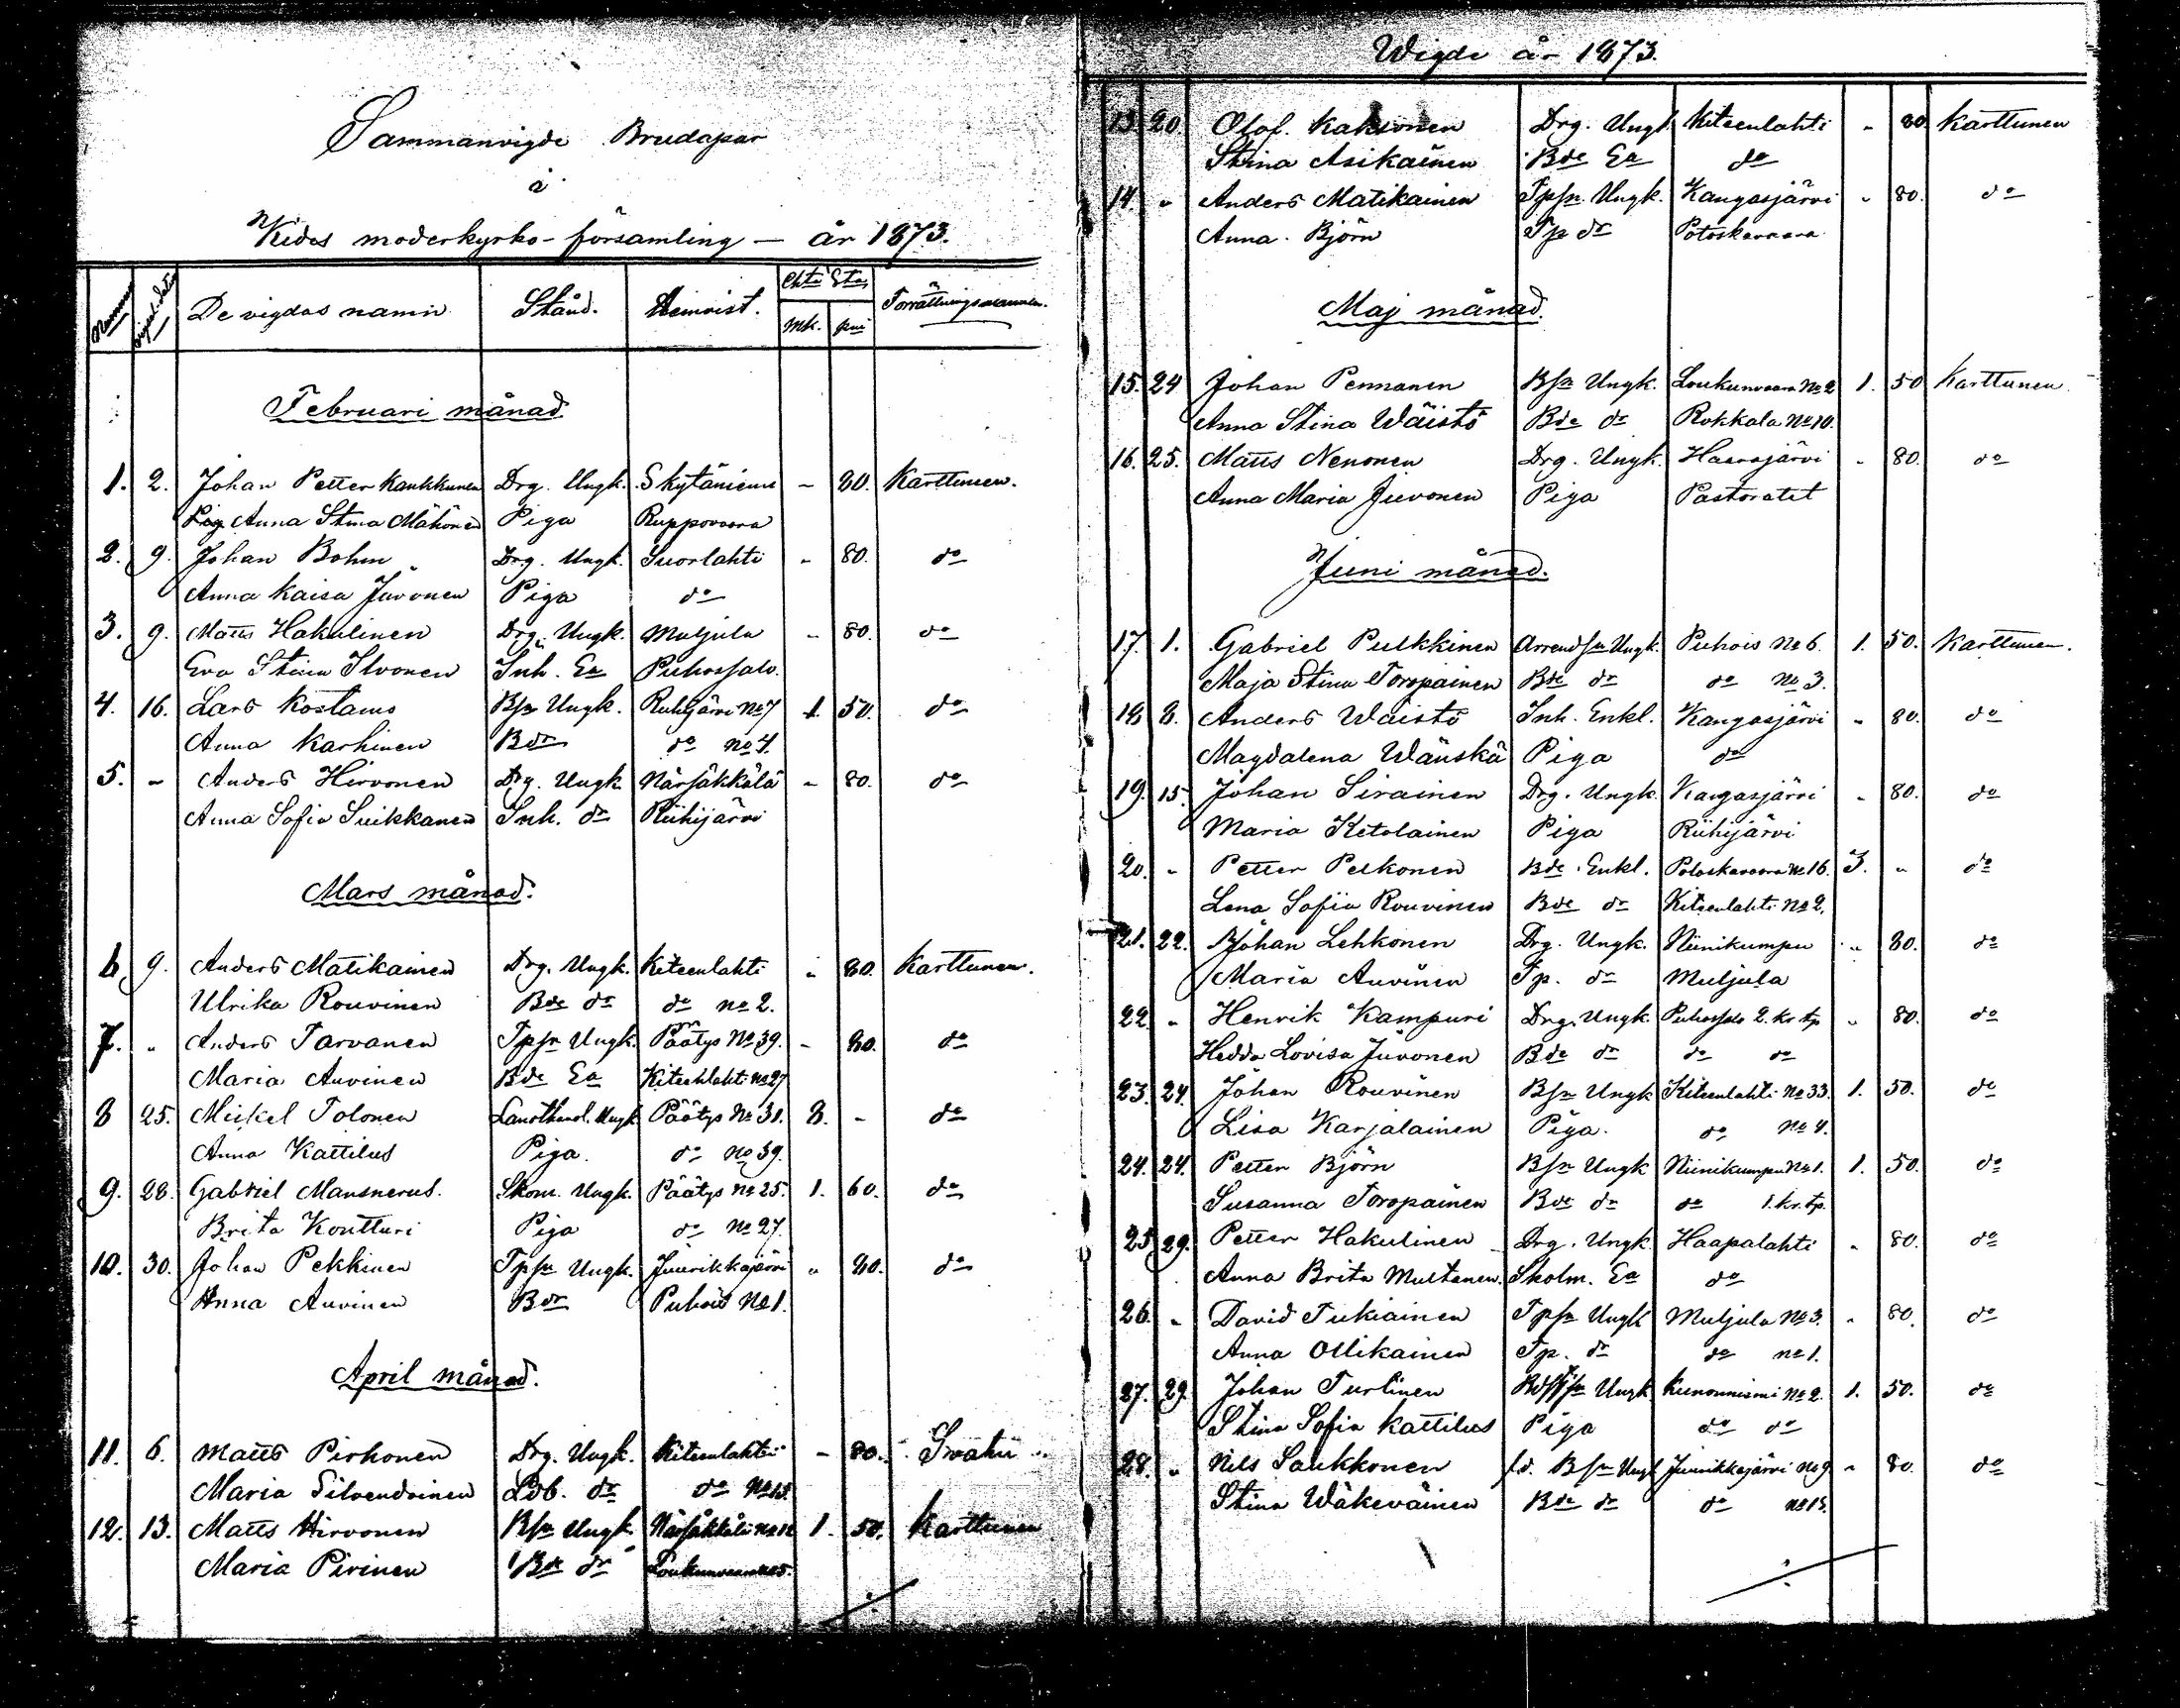 Sammanvigde Brudapar
i
Kides moderkyrko-församling — år 1873.
Nummer De vigdas namn Stånd. Hemvist. Förrättningsmannen.
Mk. pni
Februari månad
1. 2. Johan Petter Kaukkunen Drg. Ungk. Skytäniemi - 80. Karttunen.
Anna Stina Mähönen Piga Ruppovaara
2. 9. Johan Bohm Drg. Ungk. Suorlahti - 80. do
Anna Kaisa Juvonen Piga do
3. 9. Matts Hakulinen Drg. Ungk. Muljula - 80. do
Eva Stina Ilvonen Inh. Ea Puhossalo.
4. 16. Lars Kostamo Bsn Ungk. Ruhijärvi No 7 1. 50. do
Anna Karhinen Bdr do No 4.
5. - Anders Hirvonen Drg. Ungk. Närsäkkälä - 80. do
Anna Sofia Suikkanen Inh. dr Riihijärvi
Mars månad.
6. 9. Anders Matikainen Drg. Ungk. Kiteenlahti - 80. Karttunen.
Ulrika Rouvinen Bde dr do No 2.
7. " Anders Tarvanen Tpsn Ungk. Päätys No 39. - 80. do
Maria Auvinen Bde Ea Kiteenlahti No 27
8 25. Mickel Tolonen Ungk Päätys No 31. 8. - do
Anna Kattilus Piga. do No 39.
9. 28. Gabriel Mansnerus. Skom. Ungk. Päätys No 25. 1. 60. do
Brita Kontturi Piga do No 27.
10. 30. Johan Pekkinen Tpsn Ungk. Juurikkajärvi " 80. do
Anna Auvinen Bdr Puhois No 1.
April månad.
11. 6. Matts Pirhonen Drg. Ungk. Kiteenlahti - 80.
Maria Silvendoinen Ldb. dr do No 13.
12. 13. Matts Hirvonen Bsn Ungk. Närsäkkälä No 12 1. 50. Karttunen
Maria Pirinen Bde dr Loukunvaara No 5.
Wigde år 1873.
13. 20. Olof. Kaksonen Drg. Ungk Kiteenlahti " 80 Karttunen
Stina Asikainen Bde Ea do
14. " Anders Matikainen Tpsn. Ungk. Kangasjärvi " 80. do
Anna. Björn Tp dr Potoskavaara
Maj månad.
15. 24 Johan Pennanen Bsn Ungk. Loukunvaara No 2 1. 50 Karttunen.
Anna Stina Wäistö Bde dr Rokkala No 10.
16. 25. Matts Nenonen Drg. Ungk. Haarajärvi - 80. do
Anna Maria Juvonen Piga Pastoratet
Juni månad.
17. 1. Gabriel Pulkkinen Arrendsn Ungk. Puhois No 6. 1. 50. Karttunen.
Maja Stina Toropainen Bde dr do No 3.
18 8. Anders Wäistö Inh. Enkl. Kangasjärvi " 80. do
Magdalena Wänskä Piga do
19. 15. Johan Sirainen Drg. Ungk. Kangasjärvi " 80. do
Maria Ketolainen Piga Riihijärvi
20. " Petter Pelkonen Bde. Enkl. Potoskavaara No 16. 3. " do
Lena Sofia Rouvinen Bde dr Kiteenlahti No 2.
21. 22. Johan Lehkonen Drg. Ungk. Niinikumpu " 80. do
Maria Auvinen Tp. dr Muljula
22. " Henrik Kampuri Drg. Ungk. Puhossalo 2. kr. tp " 80. do
Hedda Lovisa Juvonen Bde dr do do
23. 24. Johan Rouvinen Bsn Ungk Kiteenlahti No 33. 1. 50. do
Lisa Karjalainen Piga. do No 4.
24. 24. Petter Björn Bsn Ungk Niinikumpu No 1. 1. 50. do
Susanna Toropainen Bde dr do 1. kr. tp.
25. 29. Petter Hakulinen Drg. Ungk. Haapalahti " 80. do
Anna Brita Multanen. Skolm. Ea do
26. " David Tukiainen Tpsn Ungk Muljula No 3. " 80. do
Anna Ollikainen Tp. dr do No 1.
27. 29. Johan Turtinen Ungk Kunonniemi No 2. 1. 50. do
Stina Sofia Kattilus Piga do do
28. " Nils Saukkonen f.d. Bsn Ungk Juurikkajärvi No 9 " 80. do
Stina Wäkeväinen Bde dr do No 13.